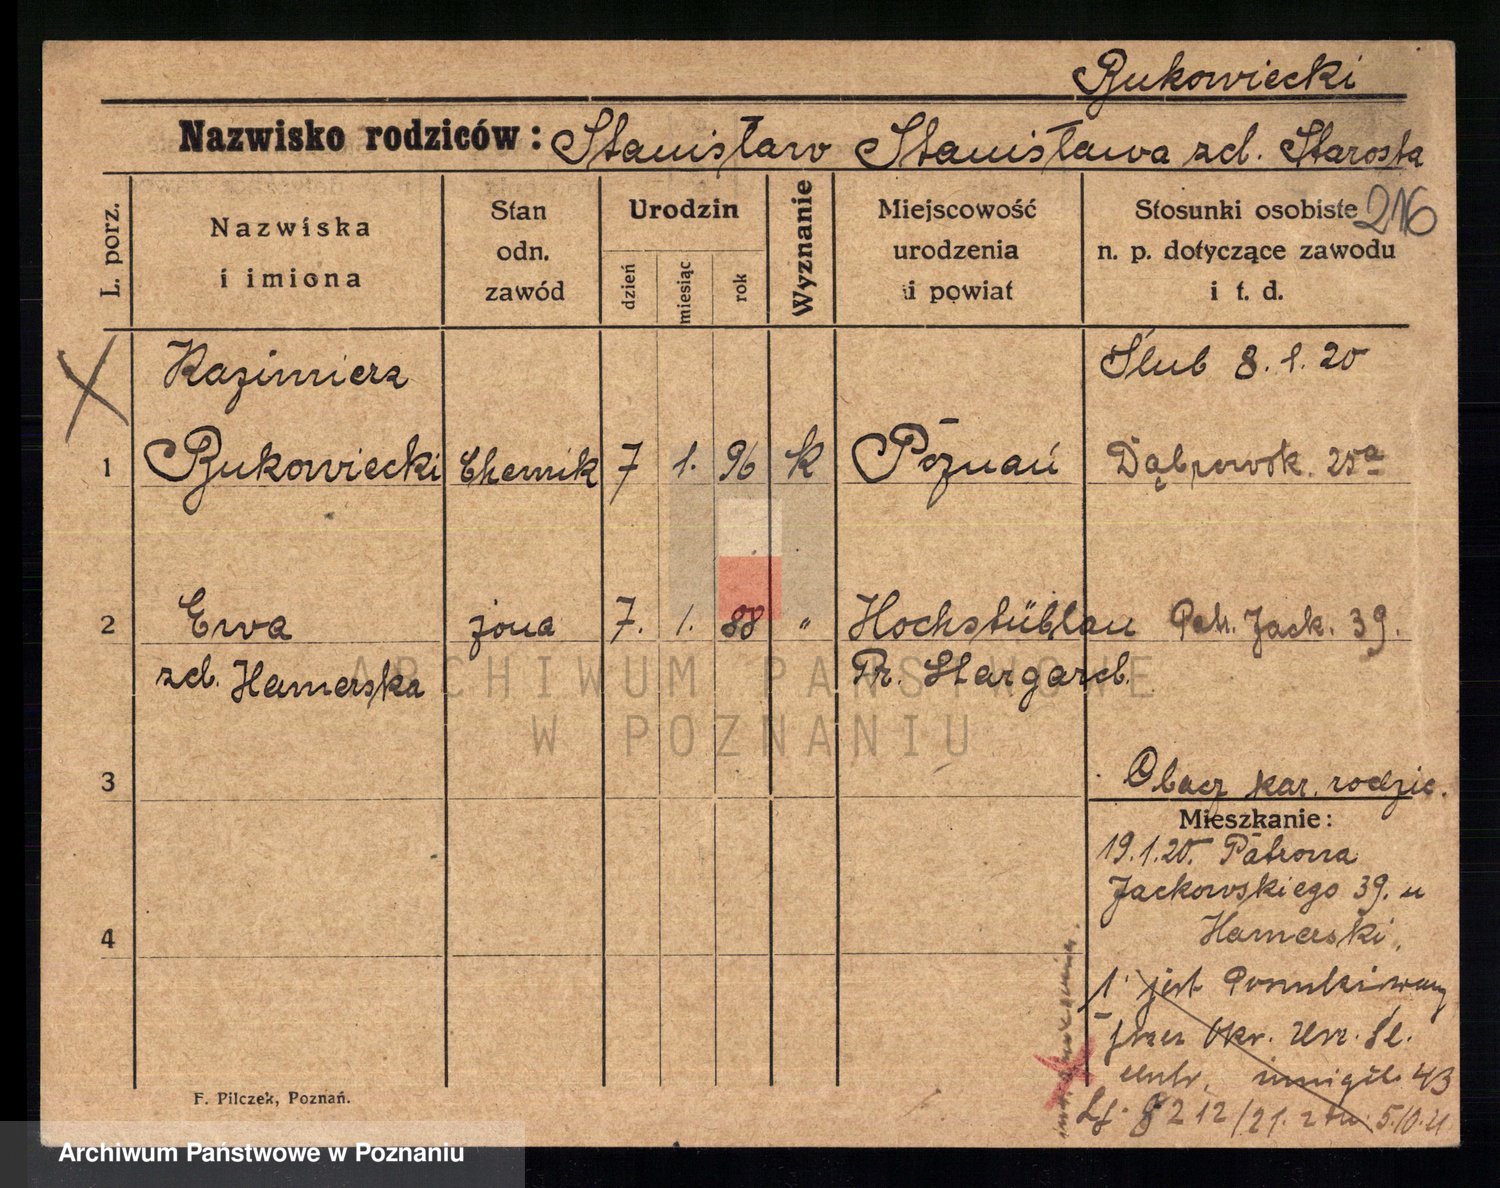 Bukowiecki
Nazwisko rodziców: Stanisław Stanisława zd. Starosta
216
L. porz.
Nazwiska
i imiona
Stan
odn.
zawód
Urodzin
dzień
miesiąc
rok
Wyznanie
Miejscowość
urodzenia
i powiat
Stosunki osobiste
n. p. dotyczące zawodu
i t. d.
Kazimierz
Ślub 8.1.20
1 Bukowiecki Chemik 7 1. 96 k Poznań Dąbrowsk. 25a
2 Ewa żona 7. 1. 88 " Hochstüblau Patr. Jack. 39.
zd. Hamerska Pr. Stargard.
ARCHIWUM PAŃSTWOWE
W POZNANIU
3
Obacz kar. rodzic.
Mieszkanie:
19.1.20. Patrona
Jackowskiego 39. u
Hamerski.
4
1 jest Poszukiwany
przez Okr. Urz. Śl.
5.10.21
F. Pilczek, Poznań.
Archiwum Państwowe w Poznaniu